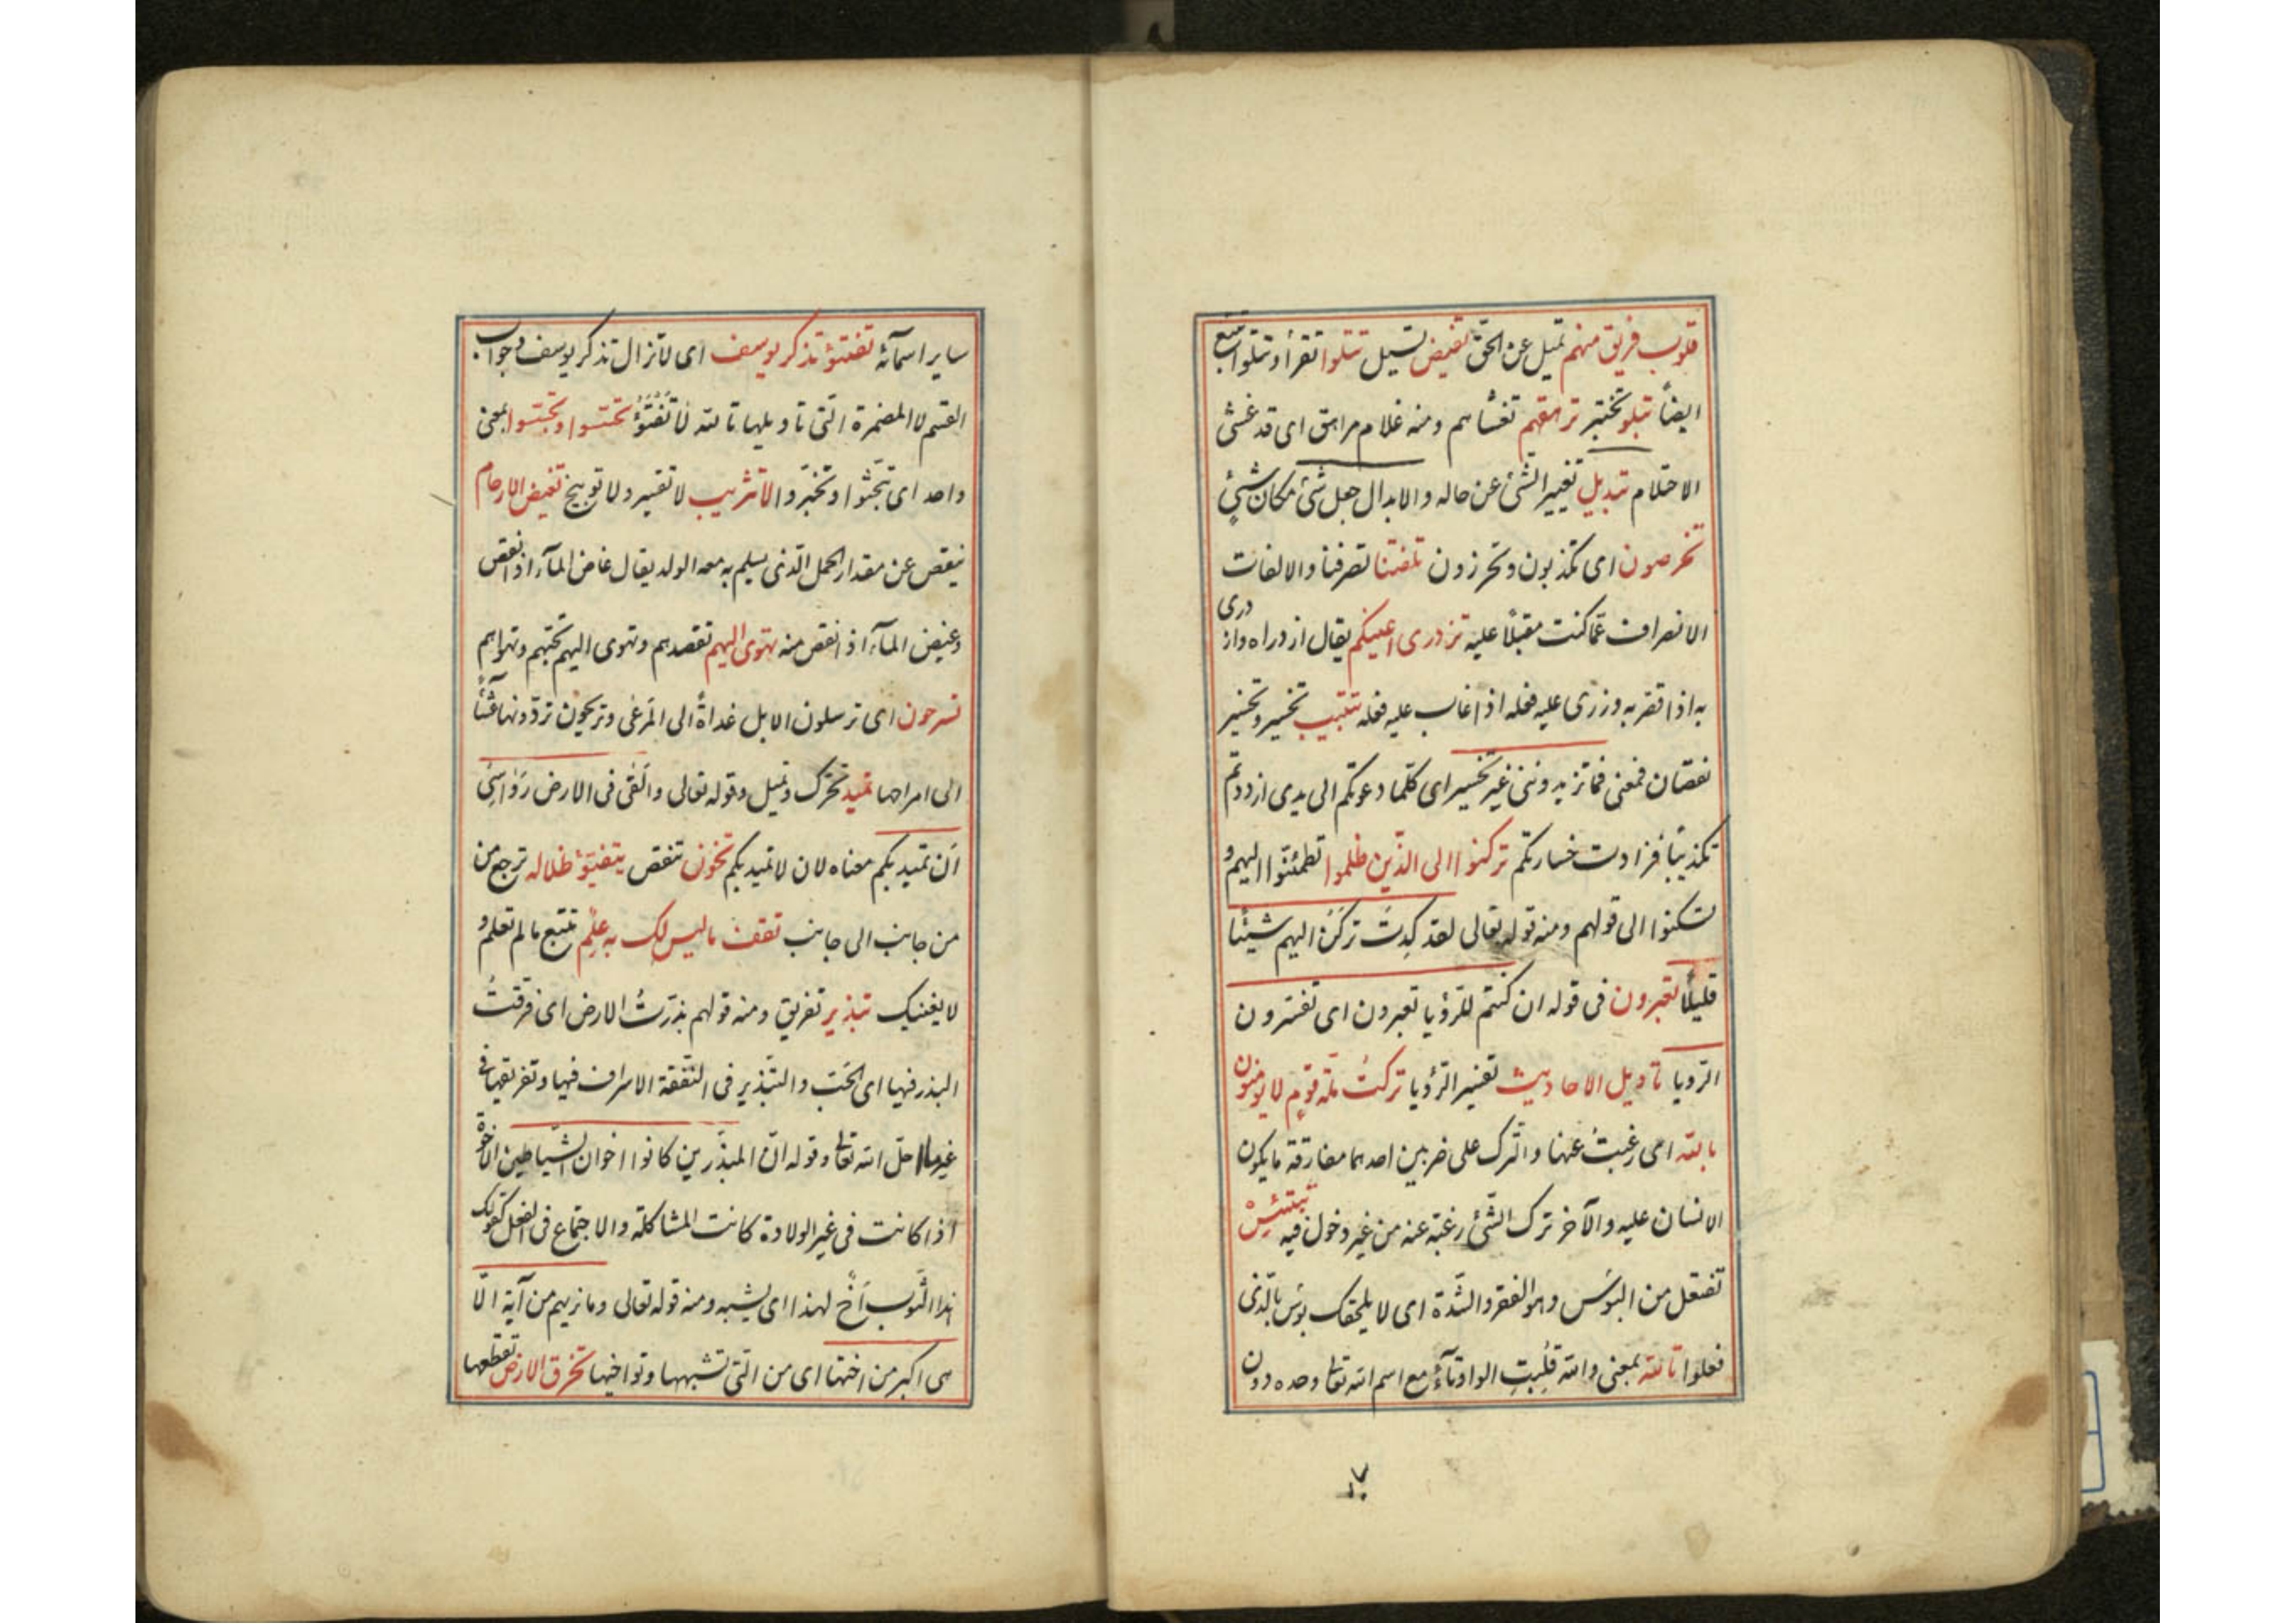 قلوب فريق منهم تميل عن الحق تفيض تسيل تتلوا تقرأ و تتلوا تتبع
ايضاً تبلو تختبر ترهقهم تغشاهم ومنه غلام مراهق اى قد غشى
الاحتلام تبديل تغيير الشئ عن حاله والابدال جعل شئ مكان شئٍ
تخرصون اى تكذبون وتحرزون تلفتنا تصرفنا والالفات
الانصراف عما كنت مقبلاً عليه تزدرى اعينكم يقال ازدراه وازدرى
به اذا قصر به وزرى عليه فعله اذا عاب عليه فعله تتبيب تخسير وتخسير
نقصان فمعنى فما تزيدوننى غير تخسير اى كلما دعوتكم الى هدى ازددتم
تكذيباً فزادت خسارتكم تركنوا الى الذين ظلموا تطمئنوا اليهم و
تسكنوا الى قولهم ومنه قوله تعالى لقد كِدتَ تركَنُ اليهم شيئا
قليلاً تعبرون فى قوله ان كنتم للرؤيا تعبرون اى تفسرون
الرّويا تأويل الاحاديث تفسير الرؤيا تركتُ ملّة قومٍ لا يومنون
بالله اى رغبتُ عنها والترك على ضربين احدهما مفارقة ما يكون
الانسان عليه والآخر ترك الشّئ رغبة عنه من غير دخول فيه تبتئِسْ
تفتعل من البوَس وهو الفقر والشّدة اى لا يلحقك بوس بالّذى
فعلوا تالله بمعنى والله قُلِبتِ الواو تآءً مع اسم الله تعالى وحده دون
ساير اسمآئه تفتئو تذكر يوسف اى لا تزال تذكر يوسف وجواب
القسم لا المضمرة الّتى تأويلها تالله لا تَفْتَؤُ تحسّسوا وتجسّسوا بمعنى
واحد اى تبحّثوا وتخبّروا لا تثريب لا تعيير ولا توبيخ تغيض الارحام
ينقص عن مقدار الحمل الّذى يسلم به معه الولد يقال غاض المآء اذا نقص
وغيض المآء اذا نقص منه تهوى اليهم تقصدهم وتهوى اليهم تحبّهم وتهواهم
تسرحون اى ترسلون الابل غداةً الى المَرعى وتريحون تردّونها عَشِيّاً
الى امراحها تميد تحرّك وتميل وقوله تعالى والْقى فى الارض رَوَاسِىَ
اَن تميد بكم معناه لان لا تميد بكم تخوّف تنقص يتفيّؤ ظلاله ترجع من
من جانب الى جانب تقف ما ليس لك به علم تتبع ما لم تعلم و
لا يعنيك تبذير تفريق ومنه قولهم بذرتُ الارض اى فرقتُ
البذر فيها اى الحَبّ والتبذير فى النفقة الاسراف فيها وتفريقها فى
غير ما احلّ الله تعالى وقوله انّ المبذّرين كانوا اخوان الشّياطين الاخوة
اذا كانت فى غير الولادة كانت المشاكلة والاجتماع فى الفعل كقولك
هذا الثّوب اَخٌ لهذا اى يشبهه ومنه قوله تعالى وما نريهم من آية الّا
هى اكبر من اختها اى من الّتى تشبهها وتواخيها تخرق الارض تقطعها